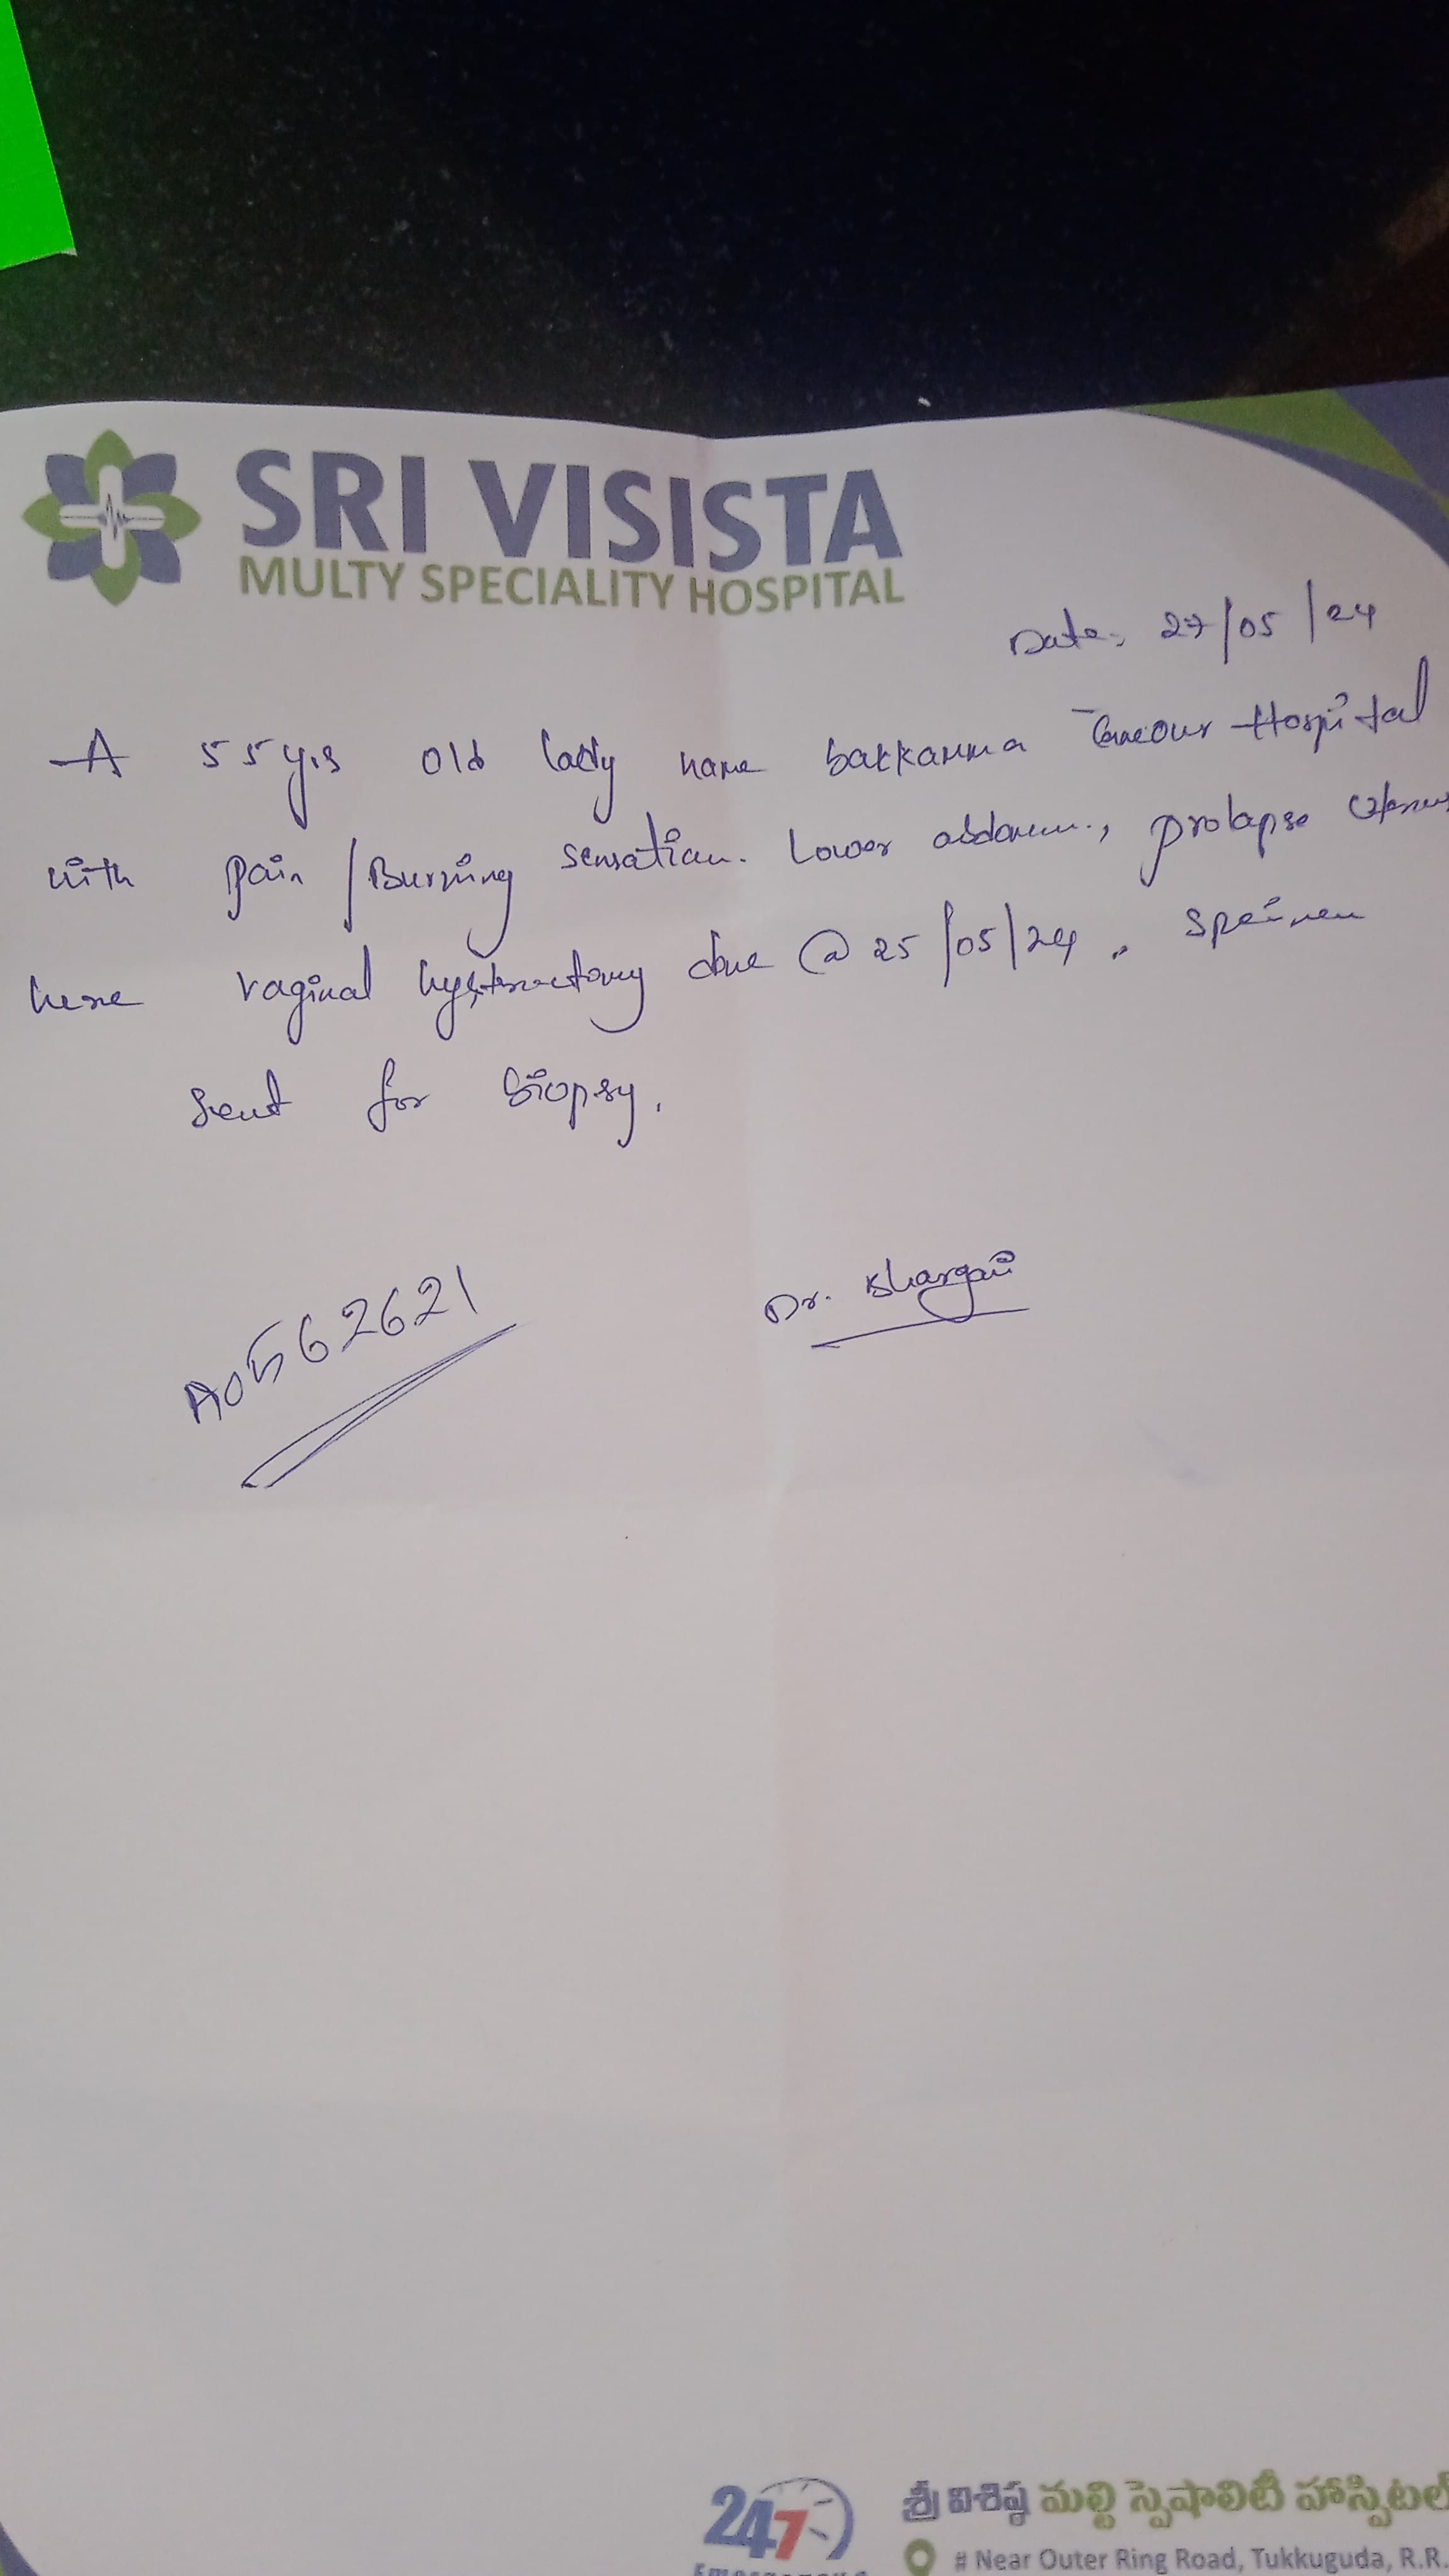 SRI VISISTA
MULTY SPECIALITY HOSPITAL
Date: 27/05/24
A 55 yrs old lady name bakkamma Hospital
with pain / Burning sensation. Lower abdomen, prolapse
vaginal hysterectomy done @ 25/05/24, specimen
sent for biopsy.
Dr. Bhargavi
A0562621
247
శ్రీ విశిష్ఠ మల్టి స్పెషాలిటీ హాస్పిటల్
# Near Outer Ring Road, Tukkuguda, R.R.